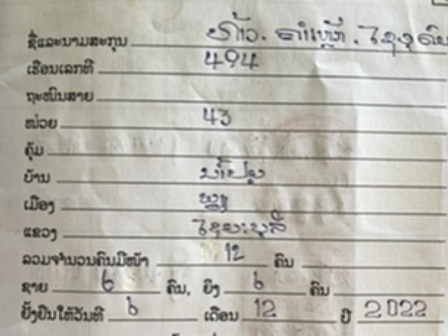 ຊື່ແລະນາມສະກຸນ ທ້າວ.
ເຮືອນເລກທີ 494
ຖະໜົນສາຍ
ໜ່ວຍ 43
ຄຸ້ມ
ບ້ານ
ເມືອງ
ແຂວງ ໄຊຍະບູລີ
ລວມຈຳນວນຄົນມີໜ້າ 12 ຄົນ
ຊາຍ 6 ຄົນ, ຍິງ 6 ຄົນ
ຢັ້ງຢືນໃຫ້ວັນທີ 6 ເດືອນ 12 ປີ 2022